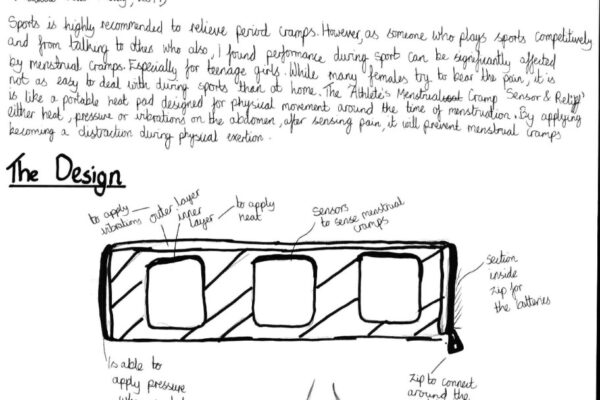 Sports is highly recommended to relieve period cramps. However, as someone who plays sports competitively
and from talking to othes who also, I found performance during sport can be significantly affected
by menstrual cramps. Especially for teenage girls. While many females try to bear the pain, it is
not as easy to deal with during sports then at home. The 'Athlete's Menstrual Cramp Sensor & Relief'
is like a portable heat pad designed for physical movement around the time of menstruation. By applying
either heat, pressure or vibrations on the abdomen, after sensing pain, it will prevent menstrual cramps
becoming a distraction during physical exertion.
The Design
to apply
vibrations
outer layer
inner
layer
to apply
heat
sensors
to sense menstrual
cramps
section
inside
zip for
the batteries
Is able to
apply pressure
zip to connect
around the